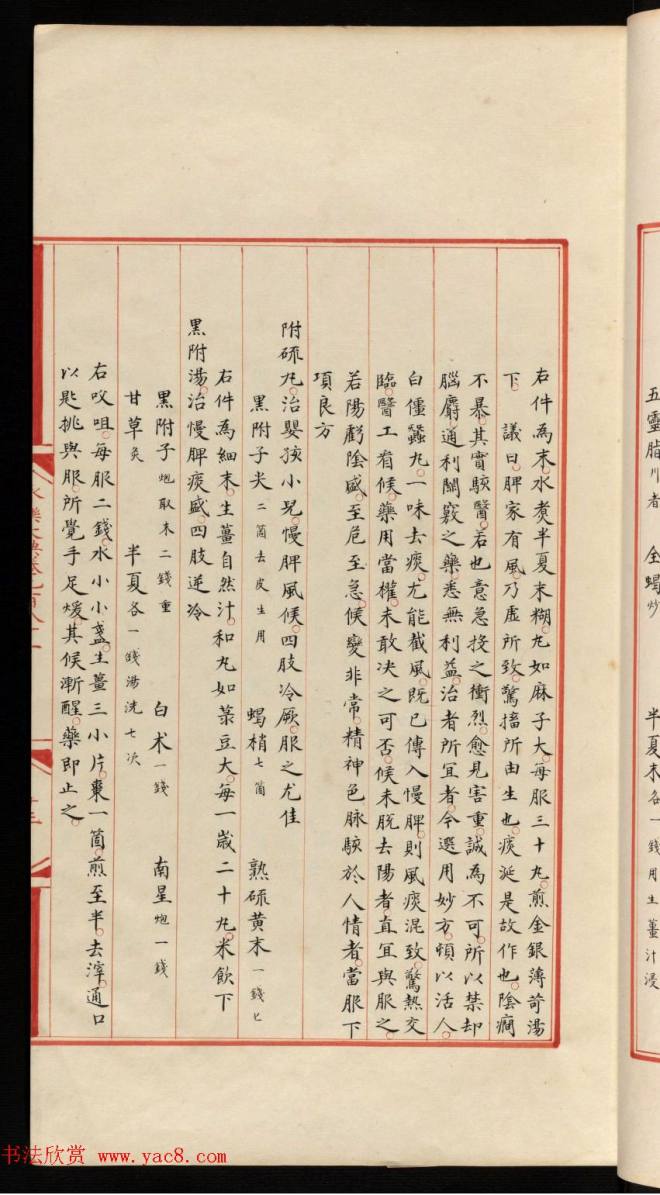 五靈脂川者　全蝎炒　半夏末各一錢用生薑汁浸
右件為末水煑半夏末糊丸如麻子大每服三十丸煎金銀薄荷湯
下　議曰脾家有風乃虛所致驚搐所由生也痰涎是故作也陰癎
不暴其實駭醫若也意急投之衝烈愈見害重誠為不可所以禁却
腦麝通利關竅之藥悉無利益治者所宜者今選用妙方頓以活人
白僵蠶丸一味去痰尤能截風既已傳入慢脾則風痰混致驚熱交
臨醫工看候藥用當權未敢决之可否候未脫去陽者直宜與服之
若陽虧陰盛至危至急候變非常精神色脉駭於人情者當服下
項良方
附硫丸治嬰孩小兒慢脾風候四肢冷厥服之尤佳
黑附子尖二箇去皮生用　蝎梢七箇　熟硫黄末一錢匕
右件為細末生薑自然汁和丸如菉豆大每一歲二十丸米飲下
黑附湯治慢脾痰盛四肢逆冷
黑附子炮取末二錢重　白术一錢　南星炮一錢
甘草炙　半夏各一錢湯洗七次
右㕮咀每服二錢水小小盞生薑三小片棗一箇煎至半去滓通口
以匙挑與服所覺手足煖其候漸醒藥即止之
书法欣赏 www.yac8.com